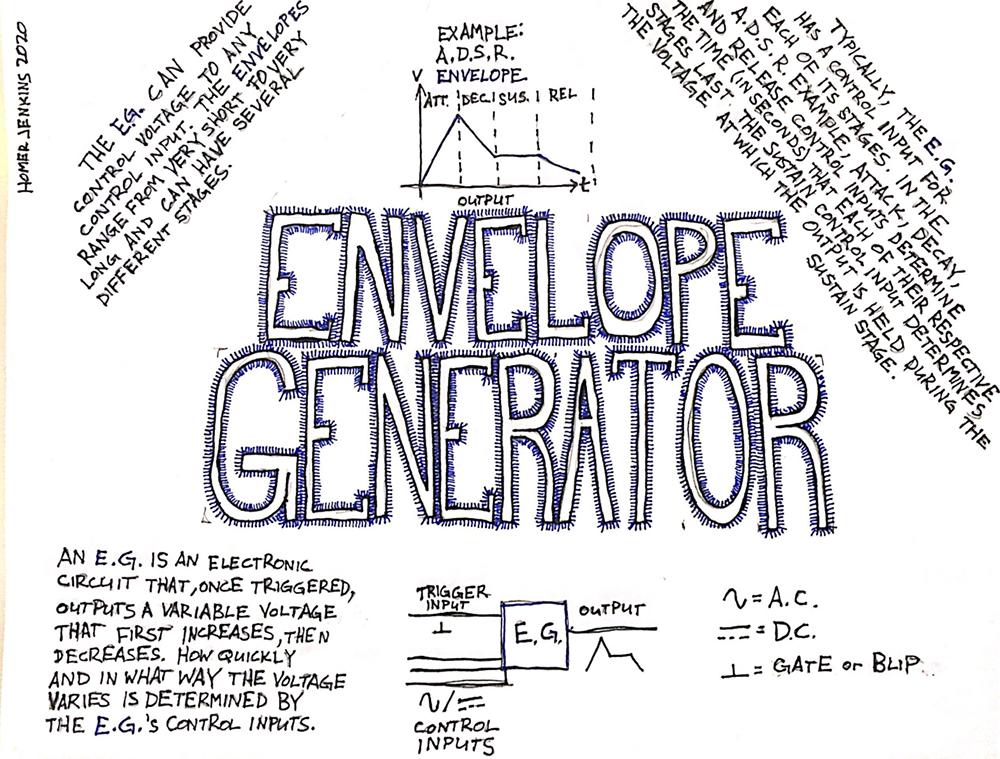 HOMER JENKINS 2020
THE E.G. CAN PROVIDE
CONTROL VOLTAGE TO ANY
CONTROL INPUT. THE ENVELOPES
RANGE FROM VERY SHORT TO VERY
LONG AND CAN HAVE SEVERAL
DIFFERENT STAGES.
EXAMPLE:
A.D.S.R.
ENVELOPE
V
ATT. DEC. SUS. REL
t
OUTPUT
TYPICALLY, THE E.G.
HAS A CONTROL INPUT FOR
EACH OF ITS STAGES. IN THE
A.D.S.R. EXAMPLE, ATTACK, DECAY,
AND RELEASE CONTROL INPUTS DETERMINE
THE TIME (IN SECONDS) THAT EACH OF THEIR RESPECTIVE
STAGES LAST. THE SUSTAIN CONTROL INPUT DETERMINES
THE VOLTAGE AT WHICH THE OUTPUT IS HELD DURING THE
SUSTAIN STAGE.
ENVELOPE
GENERATOR
AN E.G. IS AN ELECTRONIC
CIRCUIT THAT, ONCE TRIGGERED,
OUTPUTS A VARIABLE VOLTAGE
THAT FIRST INCREASES, THEN
DECREASES. HOW QUICKLY
AND IN WHAT WAY THE VOLTAGE
VARIES IS DETERMINED BY
THE E.G.'S CONTROL INPUTS.
TRIGGER
INPUT
⊥
E.G.
OUTPUT
∿/⎓
CONTROL
INPUTS
∿ = A.C.
⎓ = D.C.
⊥ = GATE or BLIP